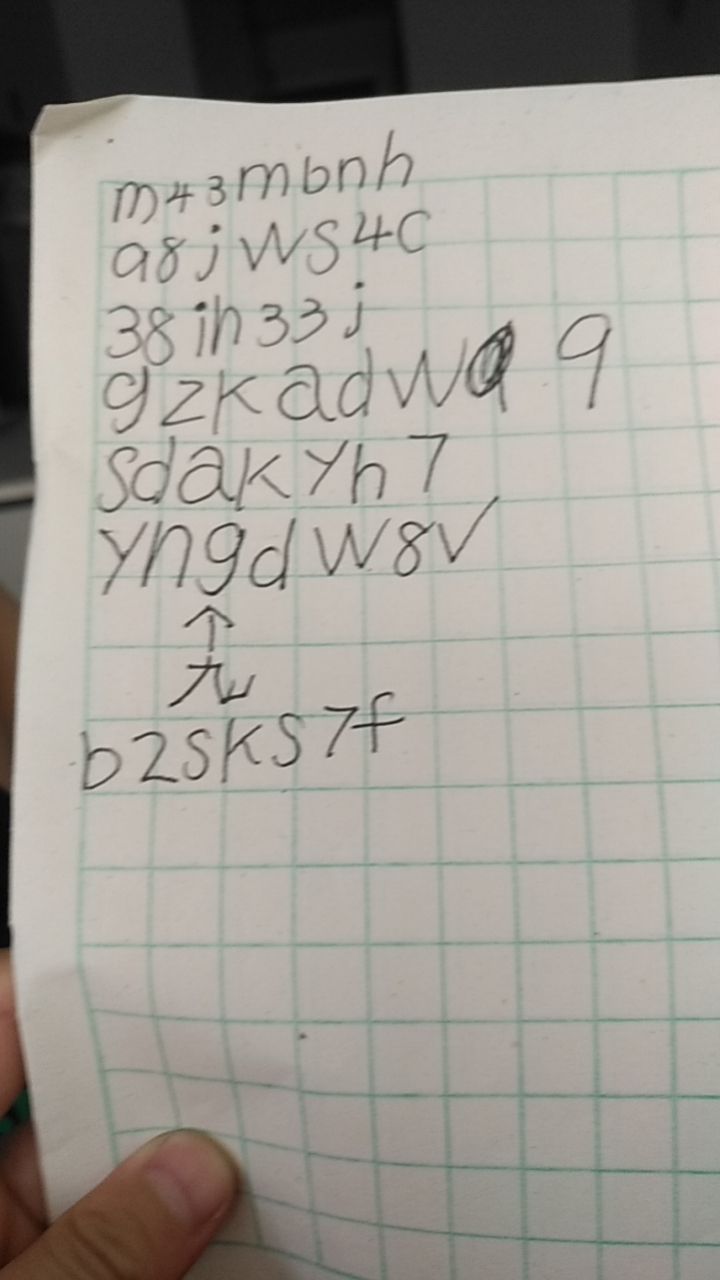 m43mbnh
a8jWS4C
38ih33j
gzkadW 9
sdakyh7
yngdW8V
↑
九
b2sks7f